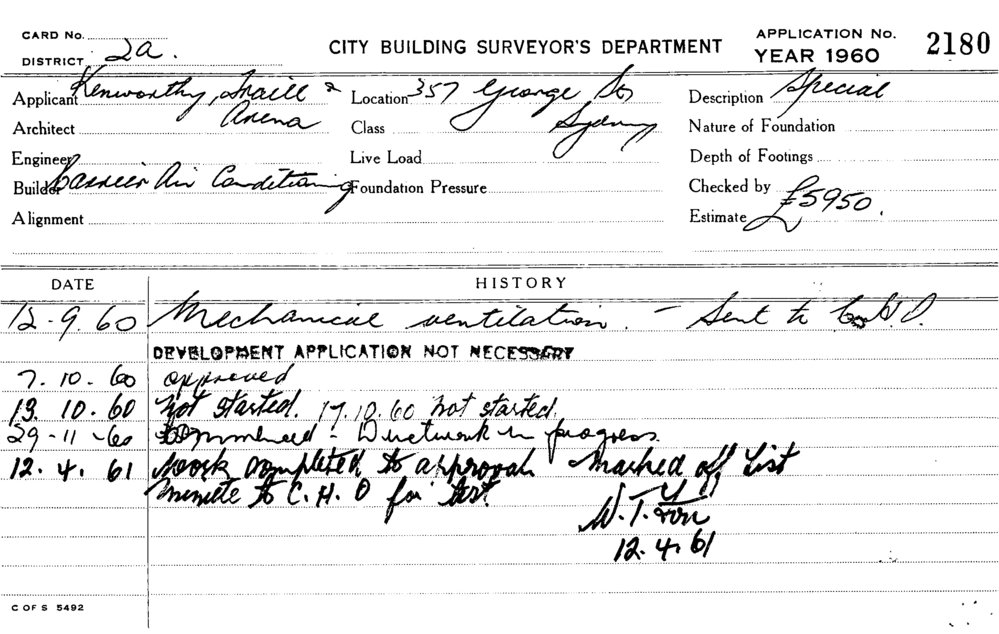 CARD No.
DISTRICT 2a.
CITY BUILDING SURVEYOR'S DEPARTMENT
APPLICATION No. 2180
YEAR 1960
Applicant Kenworthy, &
Arena
Location 357 George St
Sydney
Description Special
Architect
Class
Nature of Foundation
Engineer
Live Load
Depth of Footings
Builder Carrier Air Conditioning
Foundation Pressure
Checked by
Alignment
Estimate £5950.
DATE HISTORY
12-9.60 Mechanical ventilation. - Sent to
DEVELOPMENT APPLICATION NOT NECESSARY
7.10.60 approved
13.10.60 Not started. 17.10.60 Not started.
29-11-60 Commenced - Ductwork in progress.
12.4.61 Work completed to approval Marked off List
Minute to C.H.O for test.
W.T.
12.4.61
C OF S 5492